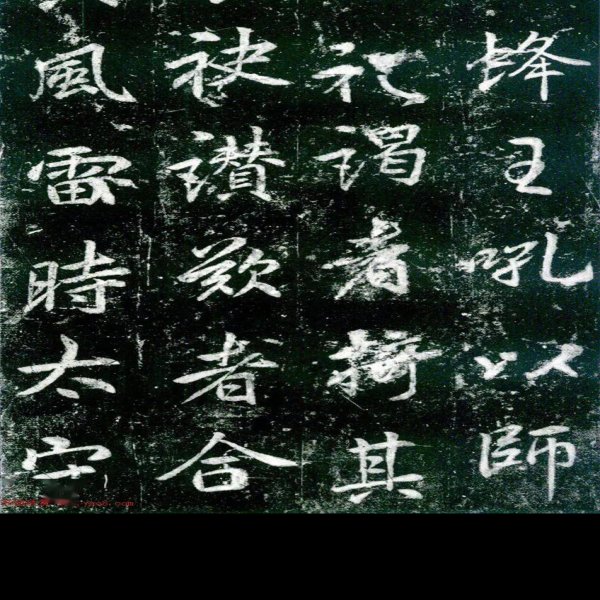 蜂王吼以師
礼謁者掎其
袂讚歎者合
風雷時太守